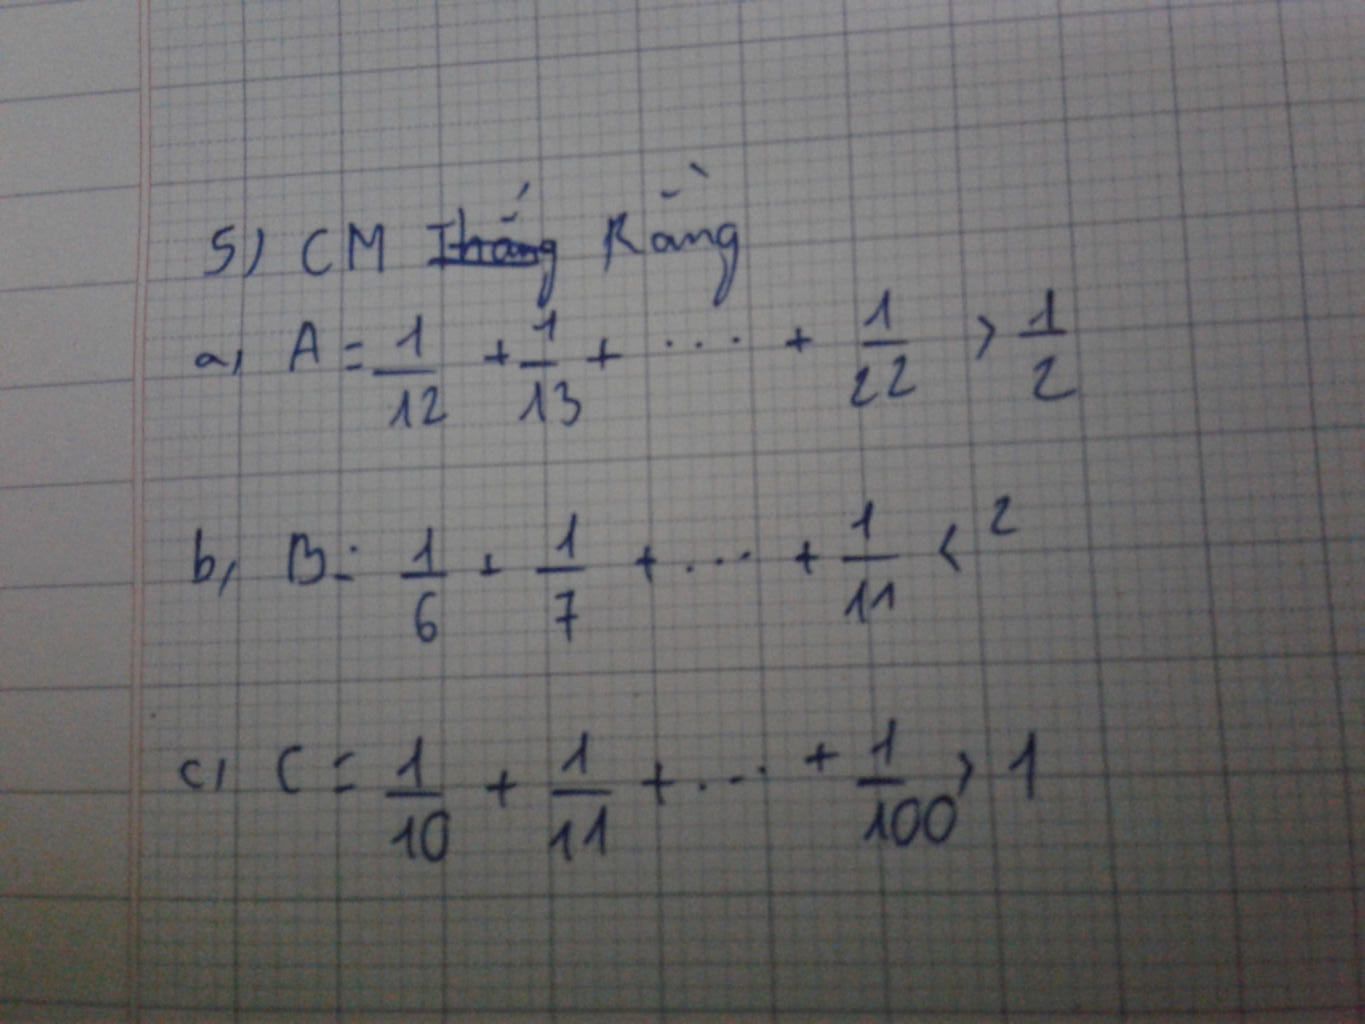 5) CM Thắng Rằng
a, A = 1/12 + 1/13 + .... + 1/22 > 1/2
b, B = 1/6 + 1/7 + ... + 1/11 < 2
c, C = 1/10 + 1/11 + ... + 1/100 > 1